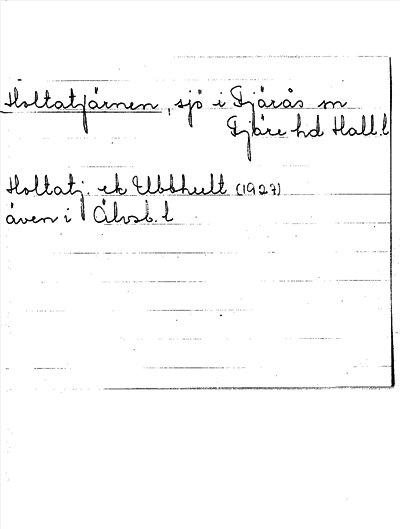 Holtatjärnen, sjö i Fjärås sn
Fjäre hd Hall. l
Holtatj. ek Ubbhult (1927)
även i Älvsb. l